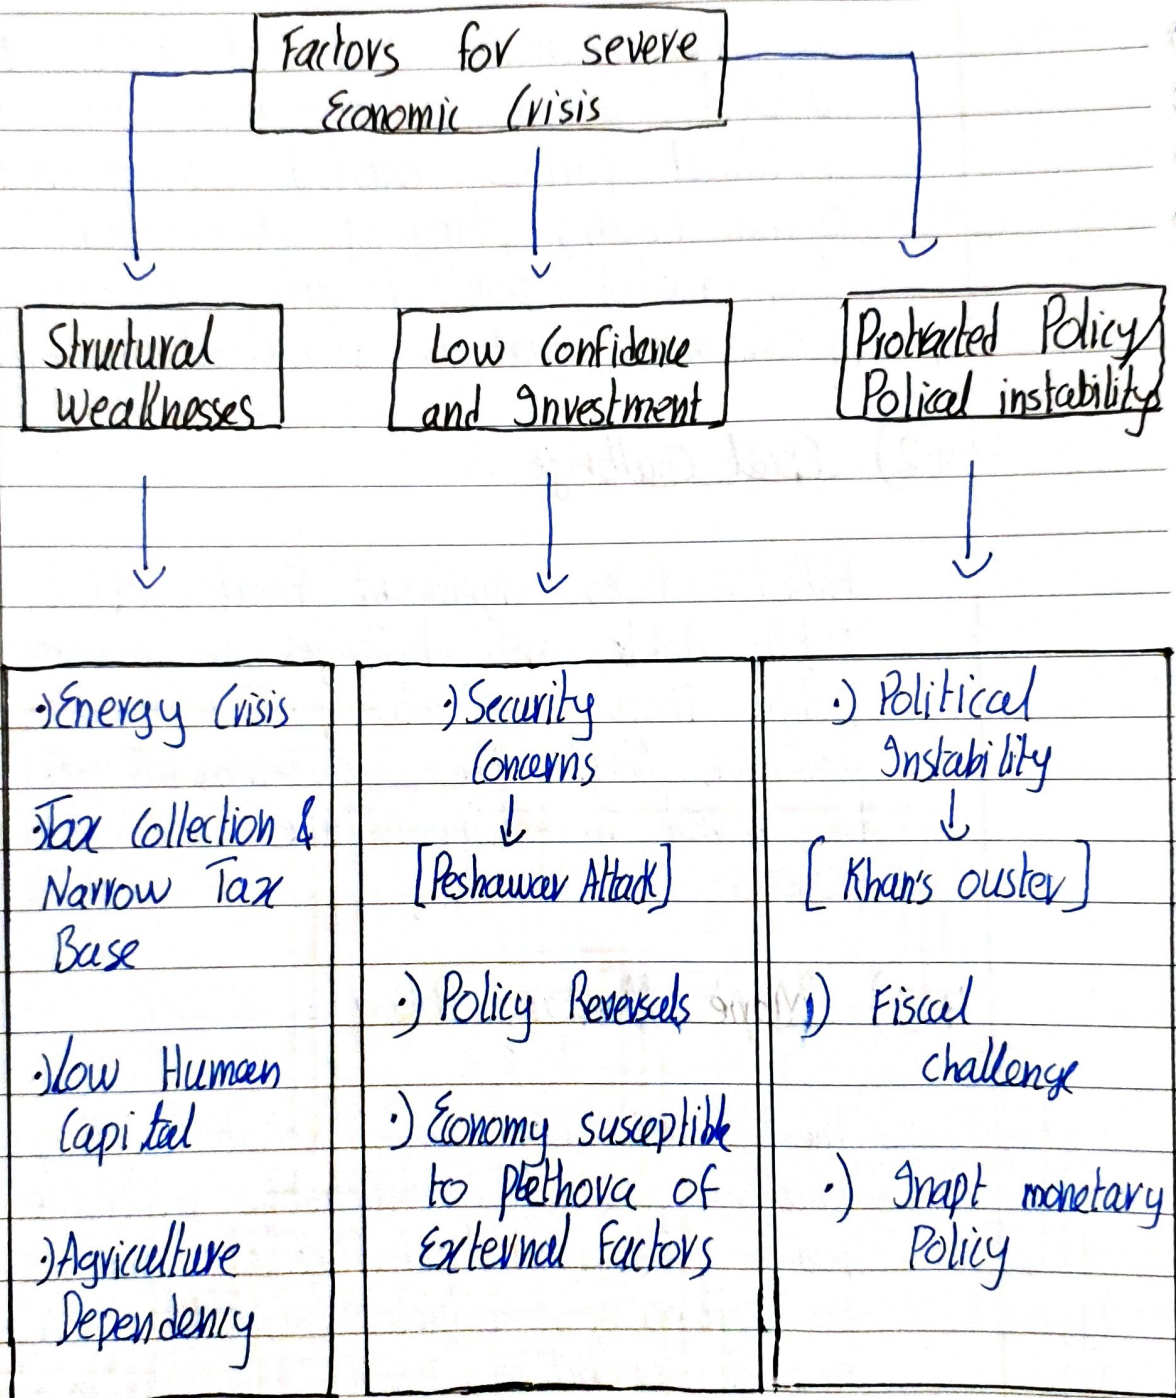 Factors for severe
Economic Crisis
Structural
Weaknesses
Low Confidence
and Investment
Protracted Policy/
Polical instability
•) Energy Crisis
•) Tax Collection &
Narrow Tax
Base
•) Low Human
Capital
•) Agriculture
Dependency
•) Security
Concerns
[Peshawar Attack]
•) Policy Reversals
•) Economy susceptible
to plethora of
External Factors
•) Political
Instability
[Khan's ouster]
•) Fiscal
challenge
•) Inapt monetary
Policy